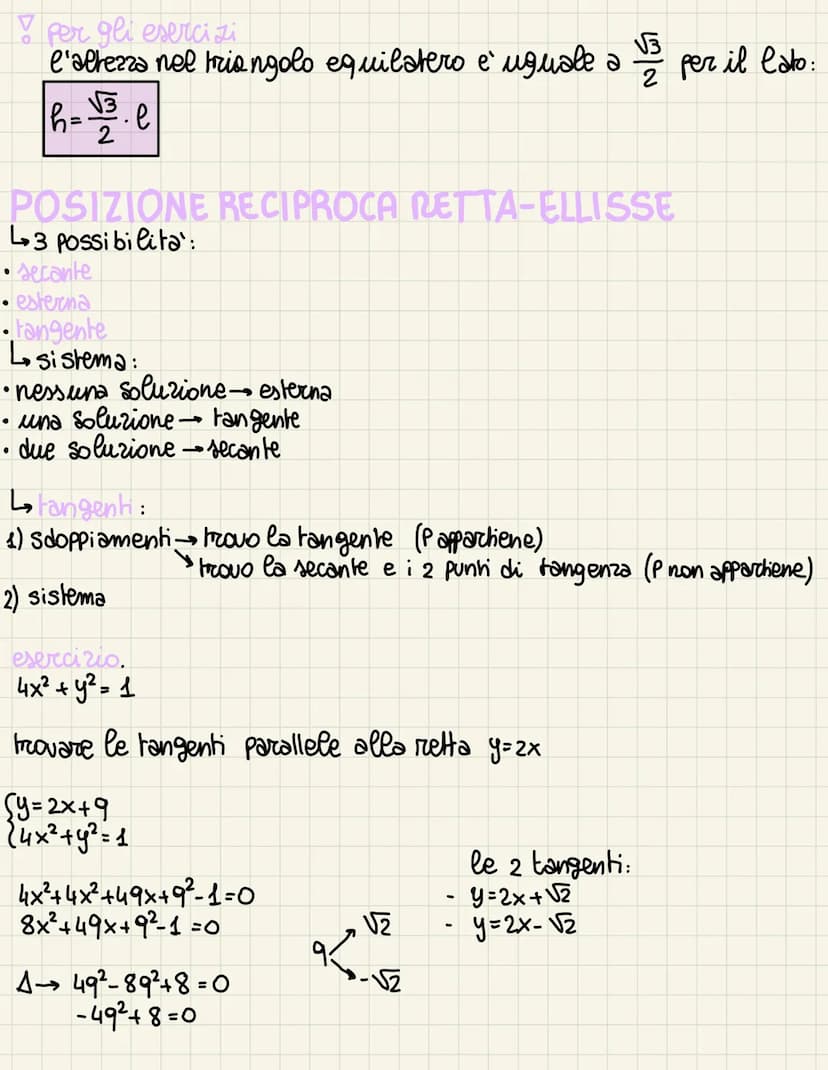 ! per gli esercizi
l'altezza nel triangolo equilatero e' uguale a √3/2 per il lato:
h = √3/2 · l
POSIZIONE RECIPROCA RETTA-ELLISSE
↳ 3 possibilita':
• secante
• esterna
• tangente
↳ sistema:
• nessuna soluzione → esterna
• una soluzione → tangente
• due soluzione → secante
↳ tangenti:
1) sdoppiamenti → trovo la tangente (P appartiene)
↘ trovo la secante e i 2 punti di tangenza (P non appartiene)
2) sistema
esercizio.
4x² + y² = 1
trovare le tangenti parallele alla retta y=2x
{ y = 2x + q
{ 4x² + y² = 1
4x² + 4x² + 4qx + q² - 1 = 0
8x² + 4qx + q² - 1 = 0
Δ → 4q² - 8q² + 8 = 0
-4q² + 8 = 0
q ↗ √2
↘ -√2
le 2 tangenti:
- y = 2x + √2
- y = 2x - √2